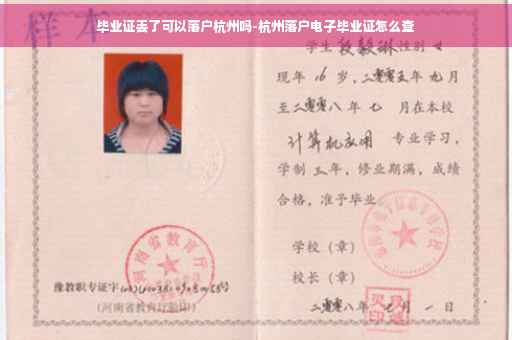 毕业证丢了可以落户杭州吗-杭州落户电子毕业证怎么查
样本
学生 段毅琳 性别 女
现年 16 岁,二零零五年 九月
至二零零八年 七 月在本校
计算机应用 专业学习,
学制 三 年,修业期满,成绩
合格,准予毕业
学校(章)
校长(章)
二零零八年 七 月 一 日
河南省教育厅
豫教职专证字
(河南省教育厅验印)